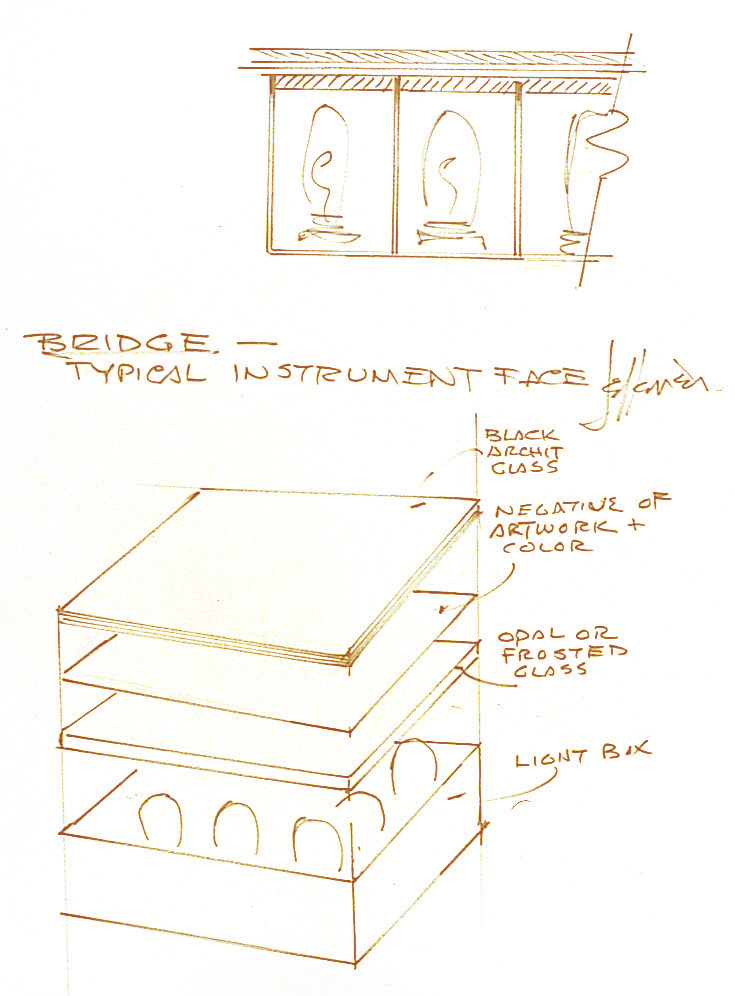 BRIDGE. —
TYPICAL INSTRUMENT FACE
BLACK
ARCHIT
GLASS
NEGATIVE OF
ARTWORK +
COLOR
OPAL OR
FROSTED
GLASS
LIGHT BOX